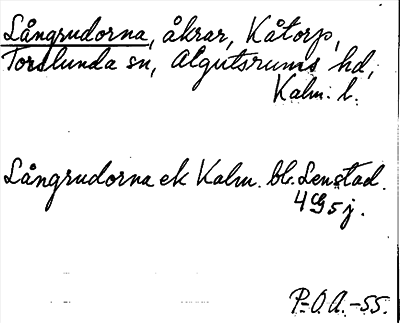 Långrudorna, åkrar, Kåtorp,
Torslunda sn, Algutsrums hd,
Kalm. l.
Långrudorna ek Kalm. bl. Lenstad
4 G 5 j.
P.-O. A. -55.